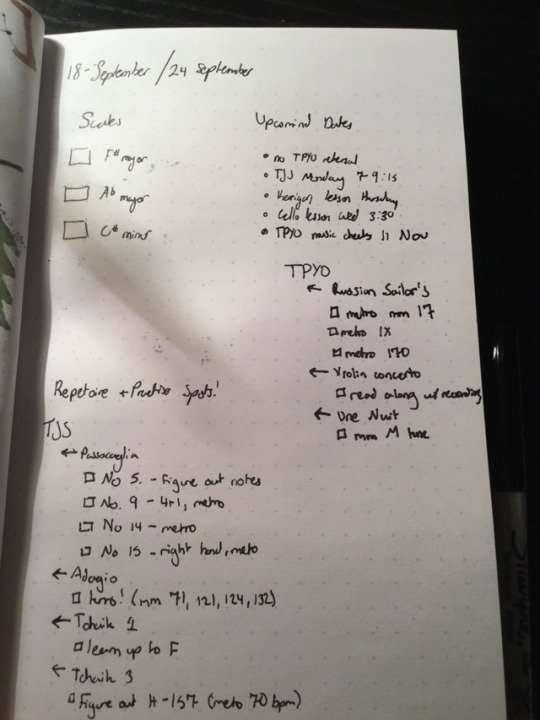 18-September / 24 September
Scales
F# major
Ab major
C# minor
Upcomind Dates
• no TPYO rehersal
• TJS Monday 7-9:15
• lesson Thursday
• Cello lesson Wed 3:30
• TPYO music checks 11 Nov
TPYO
← Russian Sailor's
metro mm 17
metro 1X
metro 170
← Violin concerto
read along w/ recording
← Une Nuit
mm M tune
Repetoire + Practise Spots!
TJS
← Passacaglia
No 5. - Figure out notes
No. 9 - 4+1, metro
No 14 - metro
No 15 - right hand, metro
← Adagio
turns! (mm 71, 121, 124, 132)
← Tchaik 1
learn up to F
← Tchaik 3
Figure out H - 157 (metro 70 bpm)